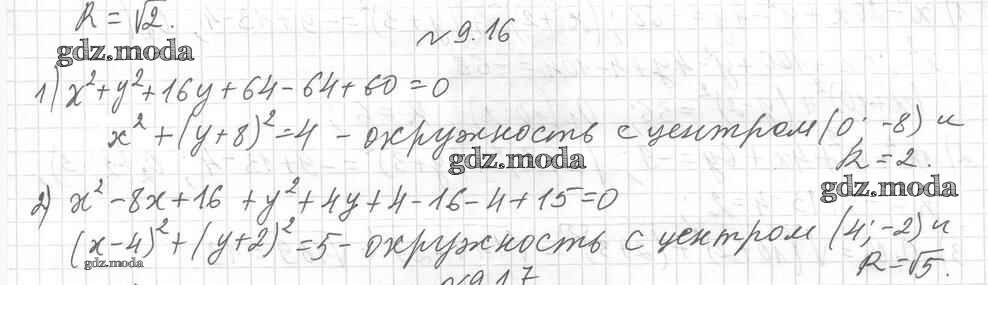 R = √2.
№ 9.16
gdz.moda
1) x² + y² + 16y + 64 - 64 + 60 = 0
x² + (y + 8)² = 4 - окружность с центром (0; -8) и
R = 2.
gdz.moda
gdz.moda
2) x² - 8x + 16 + y² + 4y + 4 - 16 - 4 + 15 = 0
(x - 4)² + (y + 2)² = 5 - окружность с центром (4; -2) и
R = √5.
gdz.moda
№ 9.17